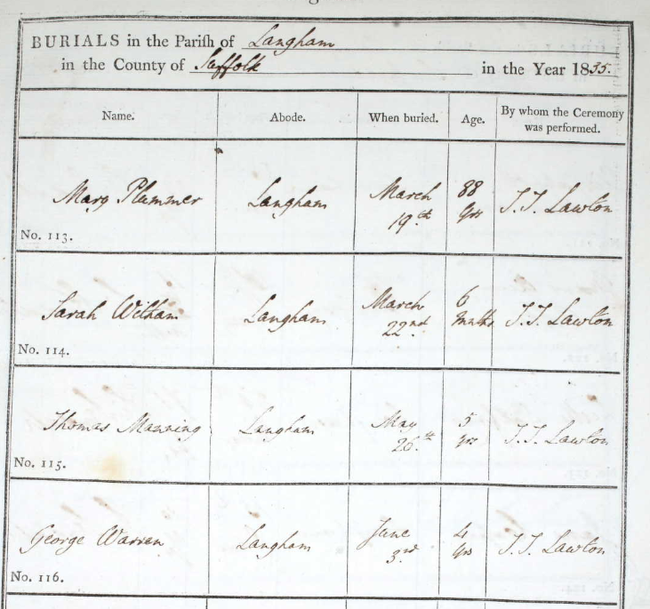 BURIALS in the Parish of Langham
in the County of Suffolk in the Year 1835.
Name. Abode. When buried. Age. By whom the Ceremony was performed.
Mary Plummer Langham March 19th 88 yrs J. J. Lawton
No. 113.
Sarah Witham Langham March 22nd 6 mnths J. J. Lawton
No. 114.
Thomas Manning Langham May 26th 5 yrs J. J. Lawton
No. 115.
George Warren Langham June 3rd 4 yrs J. J. Lawton
No. 116.